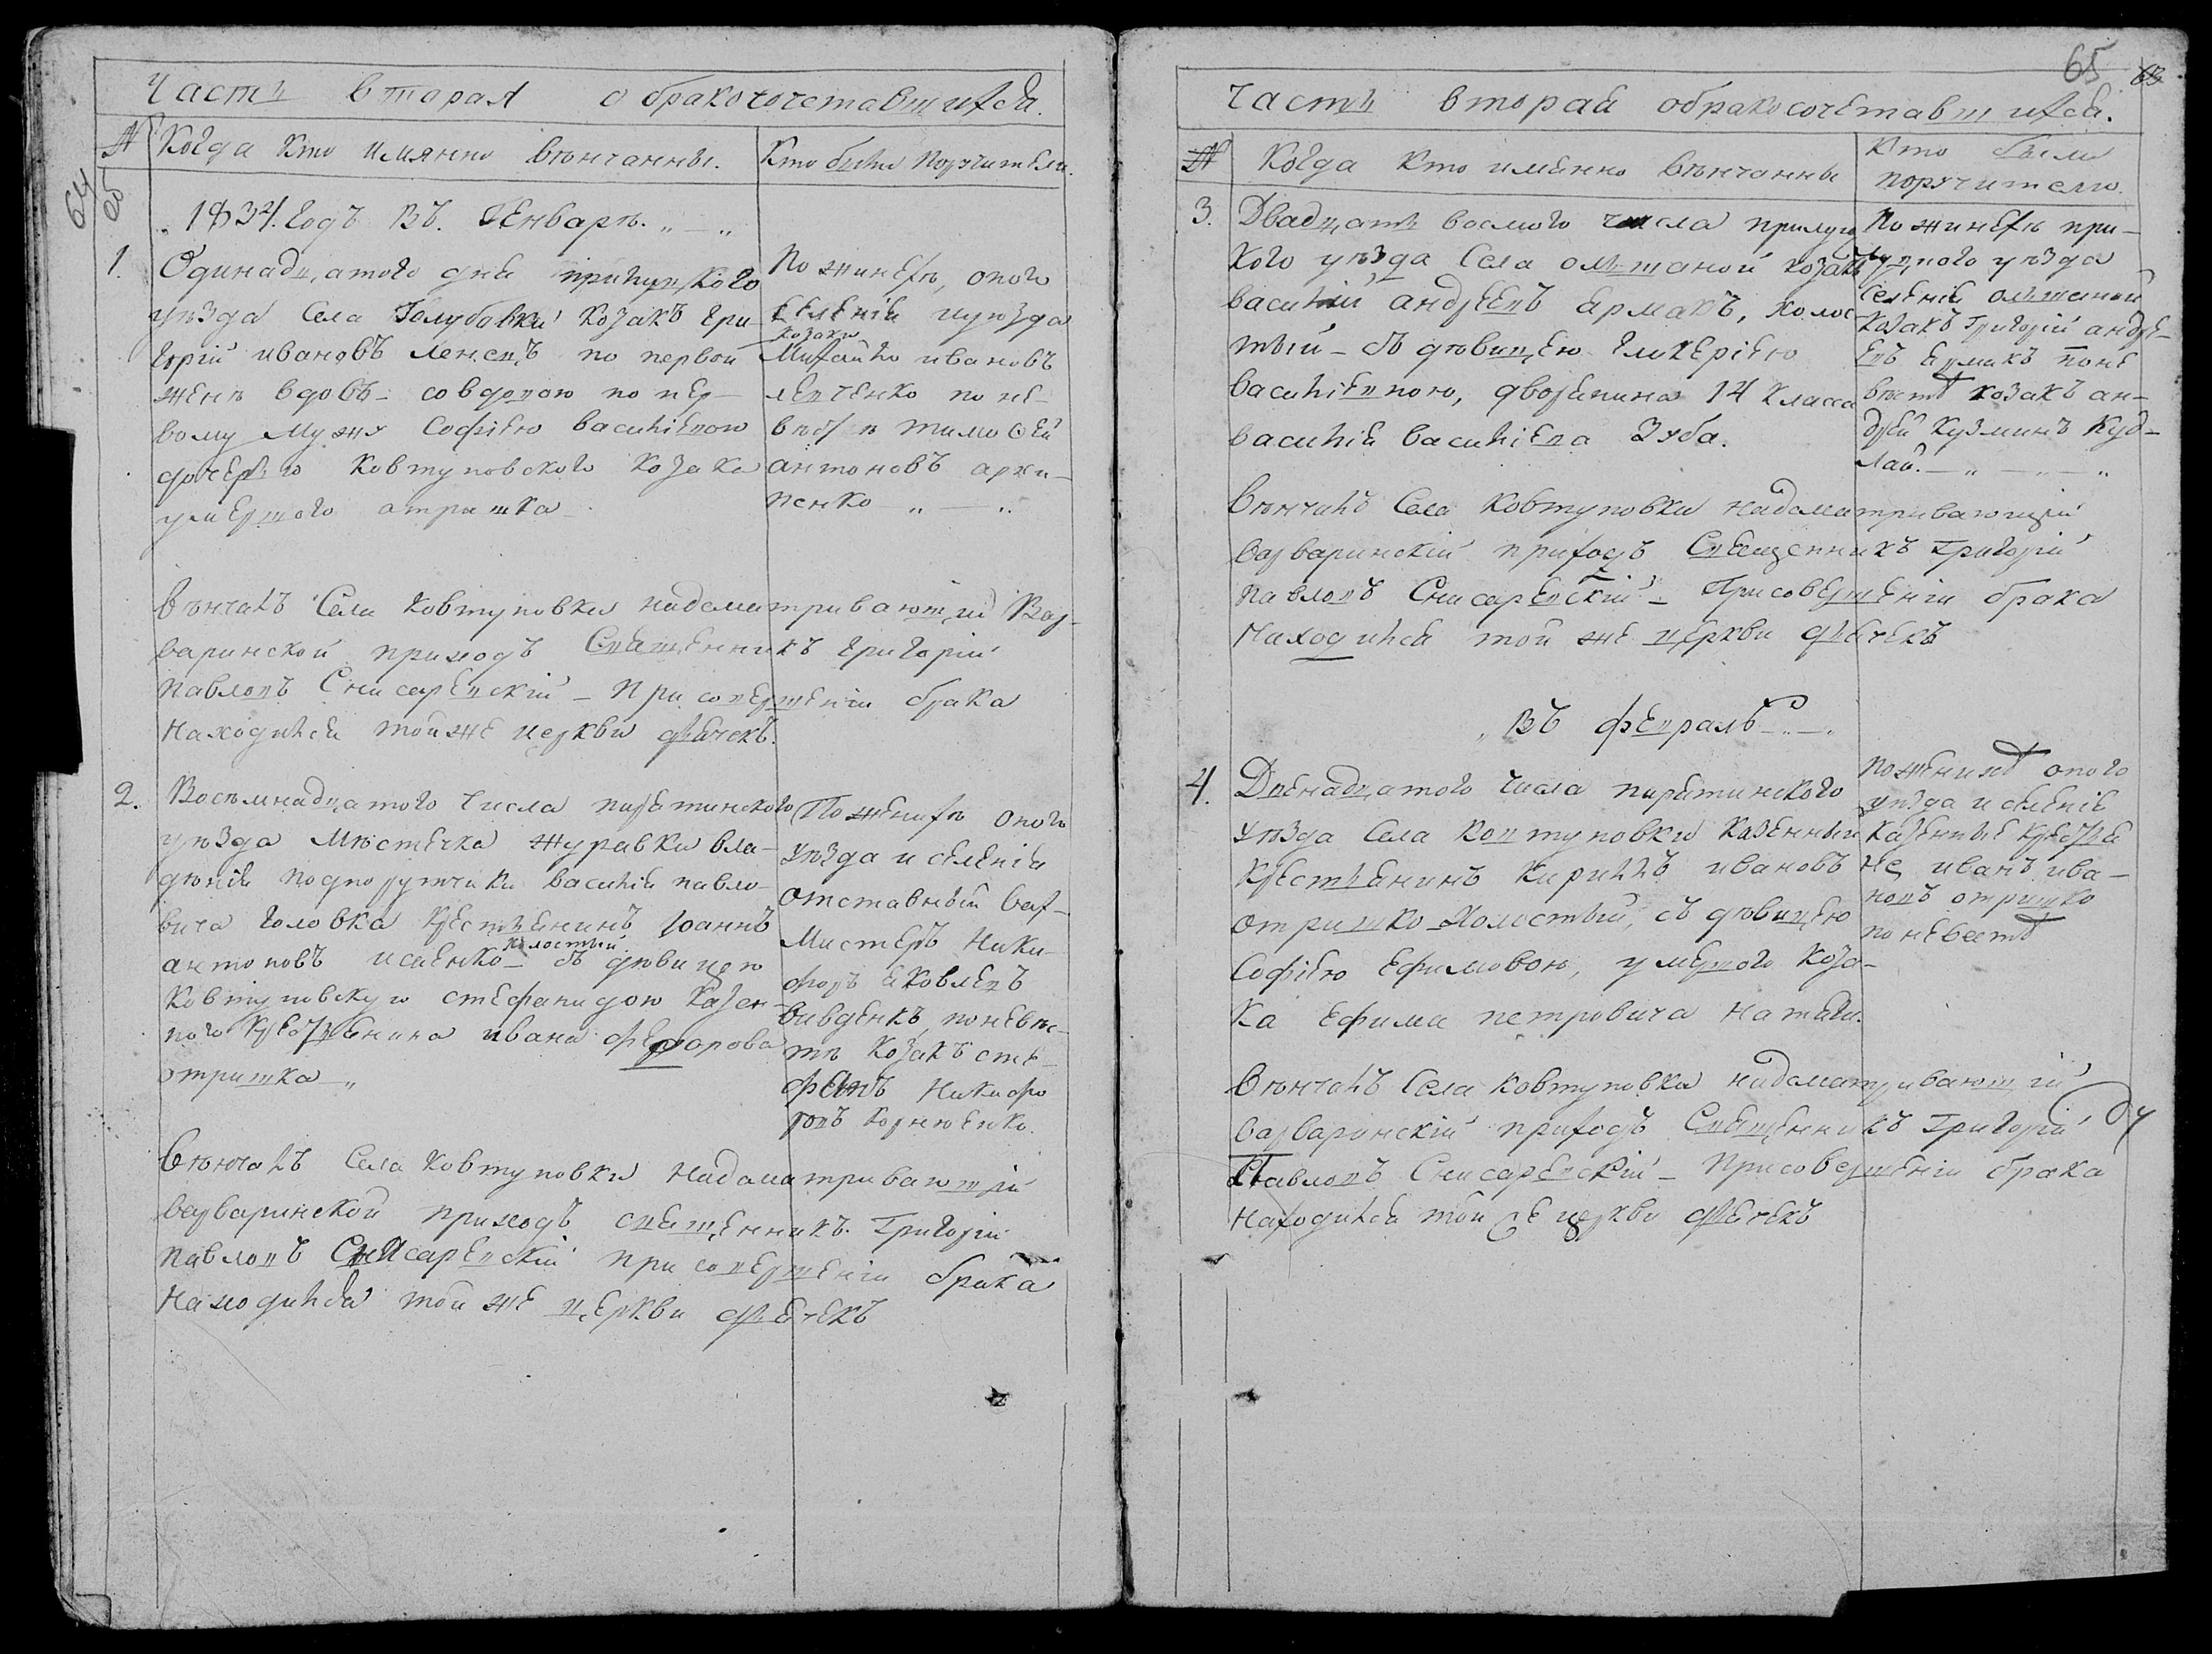 Часть вторая о бракосочетавшихся.
№ Когда кто имянно венчанны. Кто были поручители.
64 об
„1834. годъ въ Генваръ. „ — „
1. Одинадцатого дня прилуцкого
уѣзда Села Голубовки козакъ Гри-
горій ивановъ по первой
женѣ вдовъ – со вдовою по пер-
вому мужу Софіею василіевою
дочерью ковтуновского козака
умершого отришка
По жинехѣ, оного
селенія и уѣзда
козаки
Михайло ивановъ
по не-
вѣстѣ тимоѳей
антоновъ архи-
пенко „ — „
Вѣнчалъ Села ковтуновки надсматривающій Вар-
варинской приходъ Священникъ григорій
павловъ Снисаревскій – При совершеніи брака
находился той же церкви дьячекъ.
2. Восемнадцатого числа пирятинского
уѣзда мѣстечка журавки вла-
дѣнія подпоручика василія павло-
вича головка крестьянинъ Іоаннъ
холостый
антоновъ исаенко – съ дѣвицею
ковтуновскую стефанидою казен-
ного крестьянина ивана федорова
отришка „
По женихѣ оного
уѣзда и селенія
отставный вах-
мистеръ Ники-
форъ яковлевъ
вивденкъ, по невѣс-
тѣ козакъ сте-
фанъ Никифо
ровъ корнюенко.
Вѣнчалъ Села ковтуновки надсматривающій
варваринской приходъ священникъ Григорій
павловъ Снисаревскій при совершеніи брака
находился той же церкви дьячекъ
65 63
Часть вторая о бракосочетавшихся.
№ Когда кто именно вѣнчанны Кто были
поручители.
3. Двадцать восмого числа прилуц
кого уѣзда Села олшаной козакъ
василій андреевъ ермакъ, холос-
тый – съ дѣвицею гликеріею
василіевною, дворянина 14 класса
василія василіева Зуба.
По жинехѣ при-
луцкого уѣзда
селенія олшаной
козакъ Григорій андре-
евъ ермакъ по не
вѣстѣ козакъ ан-
дрей кузминъ куд-
лай. — „ — „ — „
Вѣнчалъ Села ковтуновки надсматривающій
варваринскій приходъ Священникъ Григорій
павловъ Снисаревскій – При совершеніи брака
находился той же церкви дьячекъ
„ Въ февралѣ — „ — „
4. Двенадцатого числа пирятинского
уѣзда Села ковтуновки казенный
крестьянинъ кирилъ ивановъ
отришко холостый, съ дѣвицею
Софіею ефимовою, умершого коза-
ка ефима петровича натяги.
по женихѣ оного
уѣзда и селенія
казенные крестья
не иванъ ива-
новъ отришко
по невестѣ
Вѣнчалъ Села ковтуновки надсматривающій
варваринскій приходъ Священникъ Григорій
Павловъ Снисаревскій – При совершеніи брака
находился той же церкви дьячекъ